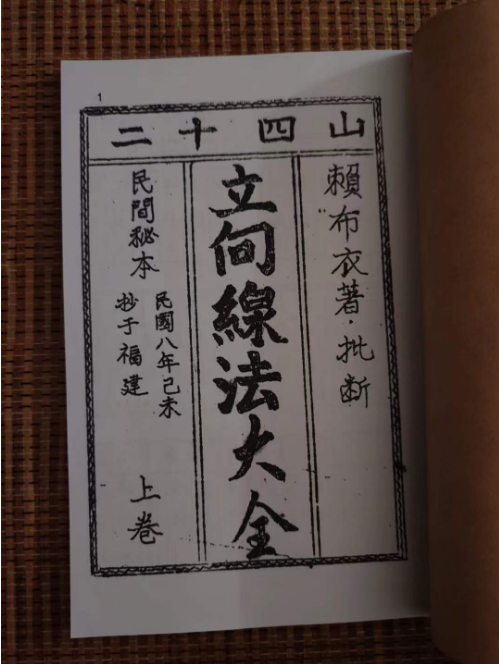 1
山四十二
賴布衣著·批断
立向線法大全
民間秘本
民國八年己未
抄于福建
上卷